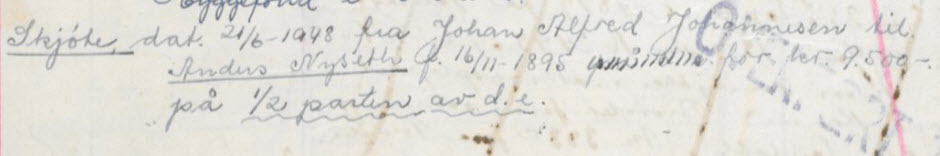 Skjøte, dat. 21/6-1948 fra Johan Alfred Johannesen til
Anders Nyseth f. 16/11-1895 for kr. 9.500-.
på 1/2 parten av d. e.